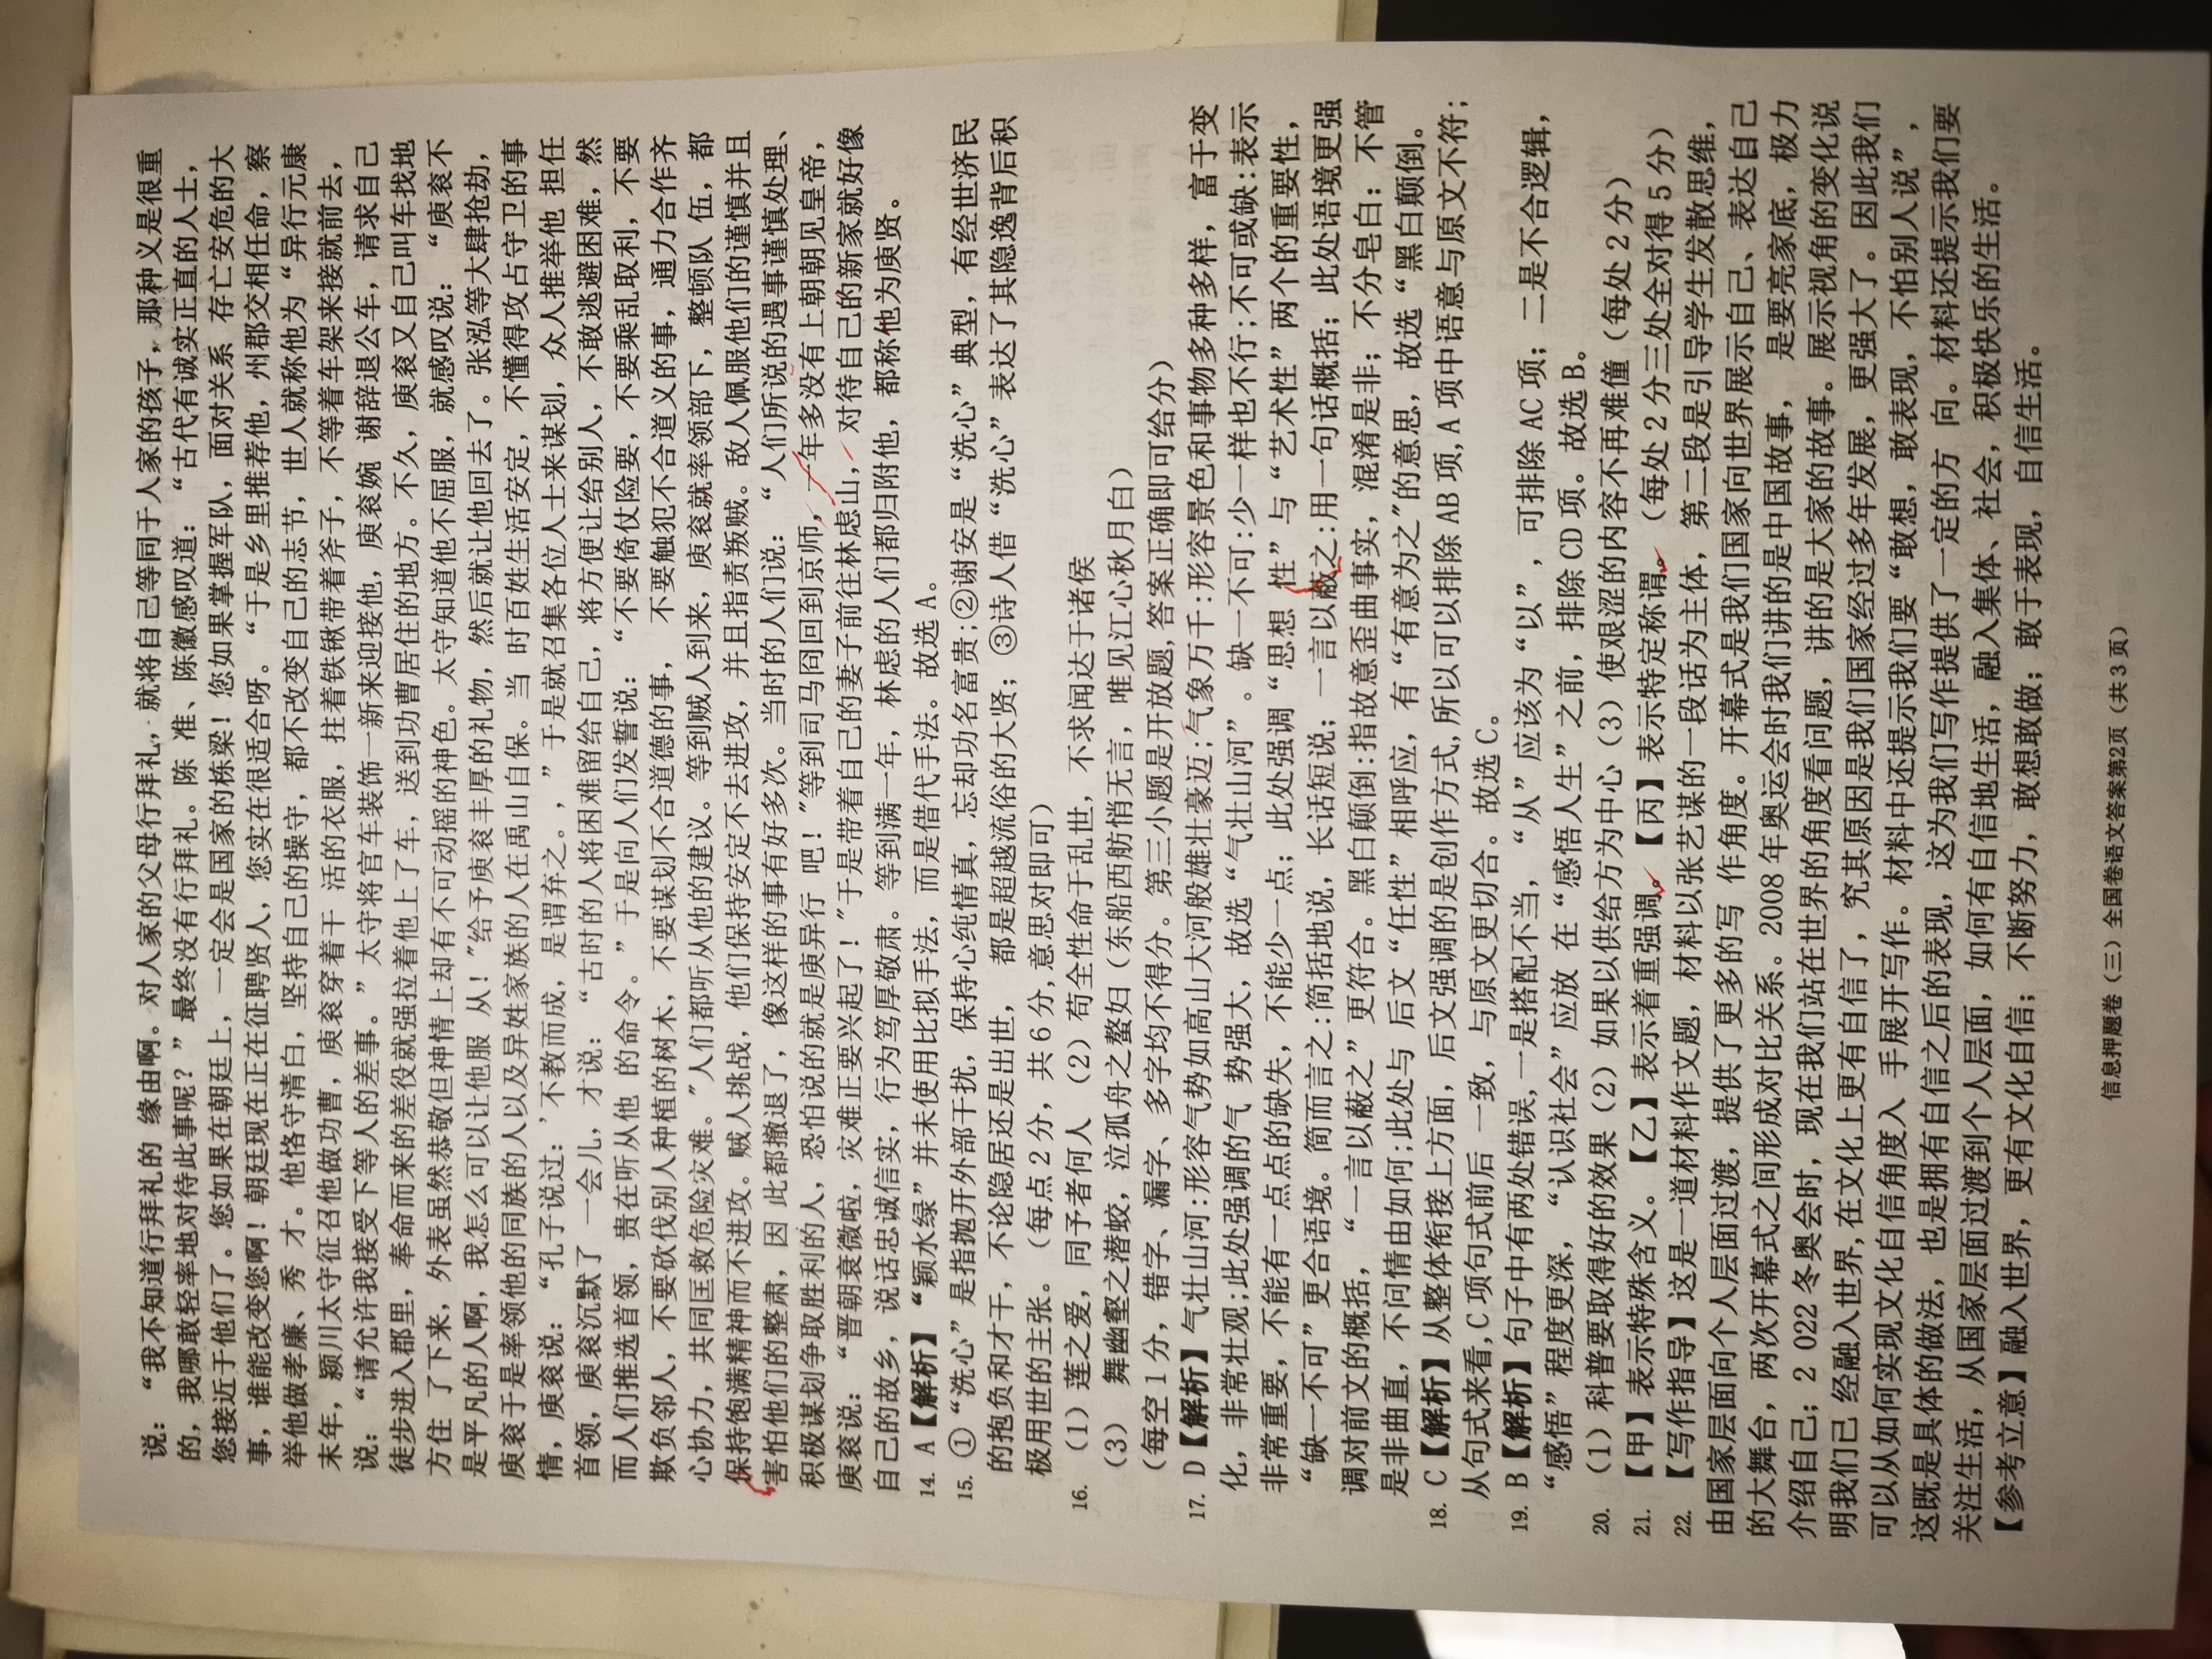 说：“我不知道行拜礼的 缘由啊。对人家的父母行拜礼，就将自己等同于人家的孩子，那种义是很重
的，我哪敢轻率地对待此事呢？”最终没有行拜礼。陈 准、陈徽感叹道：“古代有诚实正直的人士，
您接近于他们了。您如果在朝廷上，一定会是国家的栋梁！您如果掌握军队，面对关系 存亡安危的大
事，谁能改变您啊！朝廷现在正在征聘贤人，您实在很适合呀。“于是乡里推荐他，州郡交相任命，察
举他做孝廉、秀 才。他恪守清白，坚持自己的操守，都不改变自己的志节，世人就称他为“异行元康
末年，颍川太守征召他做功曹，庾衮穿着干 活的衣服，拄着铁锹带着斧子，不等着车架来接就前去，
说：“请允许我接受下等人的差事。”太守将官车装饰一新来迎接他，庾衮婉 谢辞退公车，请求自己
徒步进入郡里，奉命而来的差役就强拉着他上了车，送到功曹居住的地方。不久，庾衮又自己叫车找地
方住 了下来，外表虽然恭敬但神情上却有不可动摇的神色。太守知道他不屈服，就感叹说：“庾衮不
是平凡的人啊，我怎么可以让他服 从！”给予庾衮丰厚的礼物，然后就让他回去了。张泓等大肆抢劫，
庾衮于是率领他的同族的人以及异姓家族的人在禹山自保。当 时百姓生活安定，不懂得攻占守卫的事
情，庾衮说：“孔子说过：’不教而成，是谓弃之。，”于是就召集各位人士来谋划，众人推举他 担任
首领，庾衮沉默了 一会儿，才说：“古时的人将困难留给自己，将方便让给别人，不敢逃避困难，然
而人们推选首领，贵在听从他 的命令。”于是向人们发誓说：“不要倚仗险要，不要乘乱取利，不要
欺负邻人，不要砍伐别人种植的树木，不要谋划不合道德的事， 不要触犯不合道义的事，通力合作齐
心协力，共同匡救危险灾难。”人们都听从他的建议。等到贼人到来，庾衮就率领部下，整顿队 伍，都
保持饱满精神而不进攻。贼人挑战，他们保持安定不去进攻，并且指责叛贼。敌人佩服他们的谨慎并且
害怕他们的整肃，因 此都撤退了，像这样的事有好多次。当时的人们说：“人们所说的遇事谨慎处理、
积极谋划争取胜利的人，恐怕说的就是庾异行 吧！”等到司马冏回到京师，一年多没有上朝朝见皇帝，
庾衮说：“晋朝衰微啦，灾难正要兴起了！”于是带着自己的妻子前往林虑山，对待自己的新家就好像
自己的故乡，说话忠诚信实，行为笃厚敬肃。等到满一年，林虑的人们都归附他，都称他为庾贤。
14. A【解析】“颖水绿”并未使用比拟手法，而是借代手法。故选 A。
15. ①“洗心”是指抛开外部干扰，保持心纯情真，忘却功名富贵;②谢安是“洗心”典型，有经世济民
的抱负和才干，不论隐居还是出世， 都是超越流俗的大贤；③诗人借“洗心”表达了其隐逸背后积
极用世的主张。（每点 2 分，共 6 分,意思对即可）
16. （1）莲之爱，同予者何人 （2）苟全性命于乱世，不求闻达于诸侯
（3） 舞幽壑之潜蛟，泣孤舟之嫠妇（东船西舫悄无言，唯见江心秋月白）
（每空 1 分，错字、漏字、多字均不得分。第三小题是开放题,答案正确即可给分）
17. D【解析】气壮山河:形容气势如高山大河般雄壮豪迈;气象万千:形容景色和事物多种多样，富于变
化，非常壮观;此处强调的气 势强大，故选“气壮山河”。缺一不可:少一样也不行;不可或缺:表示
非常重要，不能有一点点的缺失，不能少一点；此处强调“思想 性”与“艺术性”两个的重要性，
“缺一不可”更合语境。简而言之:简括地说，长话短说；一言以蔽之:用一句话概括；此处语境更强
调对前文的概括，“一言以蔽之”更符合。黑白颠倒:指故意歪曲事实，混淆是非；不分皂白：不管
是非曲直，不问情由如何;此处与 后文“任性”相呼应，有“有意为之”的意思，故选“黑白颠倒。
18. C【解析】从整体衔接上方面，后文强调的是创作方式,所以可以排除 AB 项,A 项中语意与原文不符；
从句式来看,C 项句式前后 一致，与原文更切合。故选 C。
19. B【解析】句子中有两处错误,一是搭配不当，“从”应该为“以”，可排除 AC 项；二是不合逻辑，
“感悟”程度更深，“认识社会”应放 在“感悟人生”之前，排除 CD 项。故选 B。
20. （1）科普要取得好的效果（2）如果以供给方为中心（3）使艰涩的内容不再难僮（每处 2 分）
21. 【甲】表示特殊含义。【乙】表示着重强调。【丙】表示特定称谓。（每处 2 分三处全对得 5 分）
22. 【写作指导】这是一道材料作文题，材料以张艺谋的一段话为主体，第二段是引导学生发散思维，
由国家层面向个人层面过渡，提供了更多的写 作角度。开幕式是我们国家向世界展示自己、表达自己
的大舞台，两次开幕式之间形成对比关系。2008 年奥运会时我们讲的是中国故事，是要亮家底，极力
介绍自己；2 022 冬奥会时，现在我们站在世界的角度看问题，讲的是大家的故事。展示视角的变化说
明我们已 经融入世界,在文化上更有自信了，究其原因是我们国家经过多年发展，更强大了。因此我们
可以从如何实现文化自信角度入 手展开写作。材料中还提示我们要“敢想，敢表现，不怕别人说”，
这既是具体的做法，也是拥有自信之后的表现，这为我们写作提供了一定的方 向。材料还提示我们要
关注生活，从国家层面过渡到个人层面，如何有自信地生活，融入集体、社会，积极快乐的生活。
【参考立意】融入世界，更有文化自信；不断努力，敢想敢做；敢于表现，自信生活。
信息押题卷（三）全国卷语文答案第2页（共 3 页）